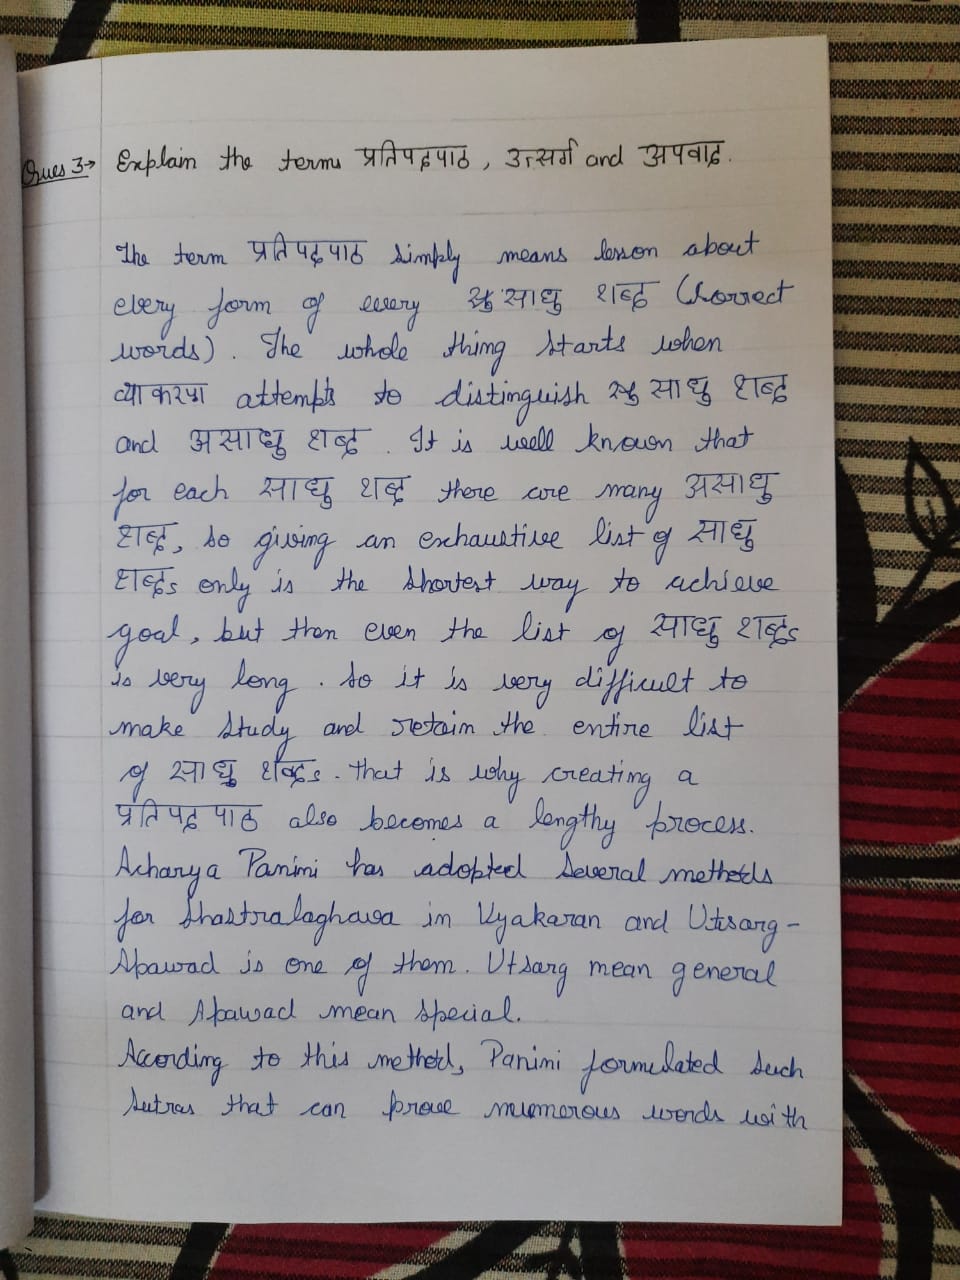 Ques 3→ Explain the terms प्रतिपदपाठ, उत्सर्ग and अपवाद.
The term प्रतिपदपाठ simply means lesson about
every form of every साधु शब्द (Correct
words). The whole thing starts when
व्याकरण attempts to distinguish साधु शब्द
and असाधु शब्द. It is well known that
for each साधु शब्द there are many असाधु
शब्द, so giving an exhaustive list of साधु
शब्दs only is the shortest way to achieve
goal, but then even the list of साधु शब्दs
is very long. So it is very difficult to
make study and retain the entire list
of साधु शब्दs. That is why creating a
प्रतिपद पाठ also becomes a lengthy process.
Acharya Panini has adopted several methods
for Shastralaghava in Vyakaran and Utsarg-
Apawad is one of them. Utsarg mean general
and Apawad mean special.
According to this method, Panini formulated such
sutras that can prove numerous words with